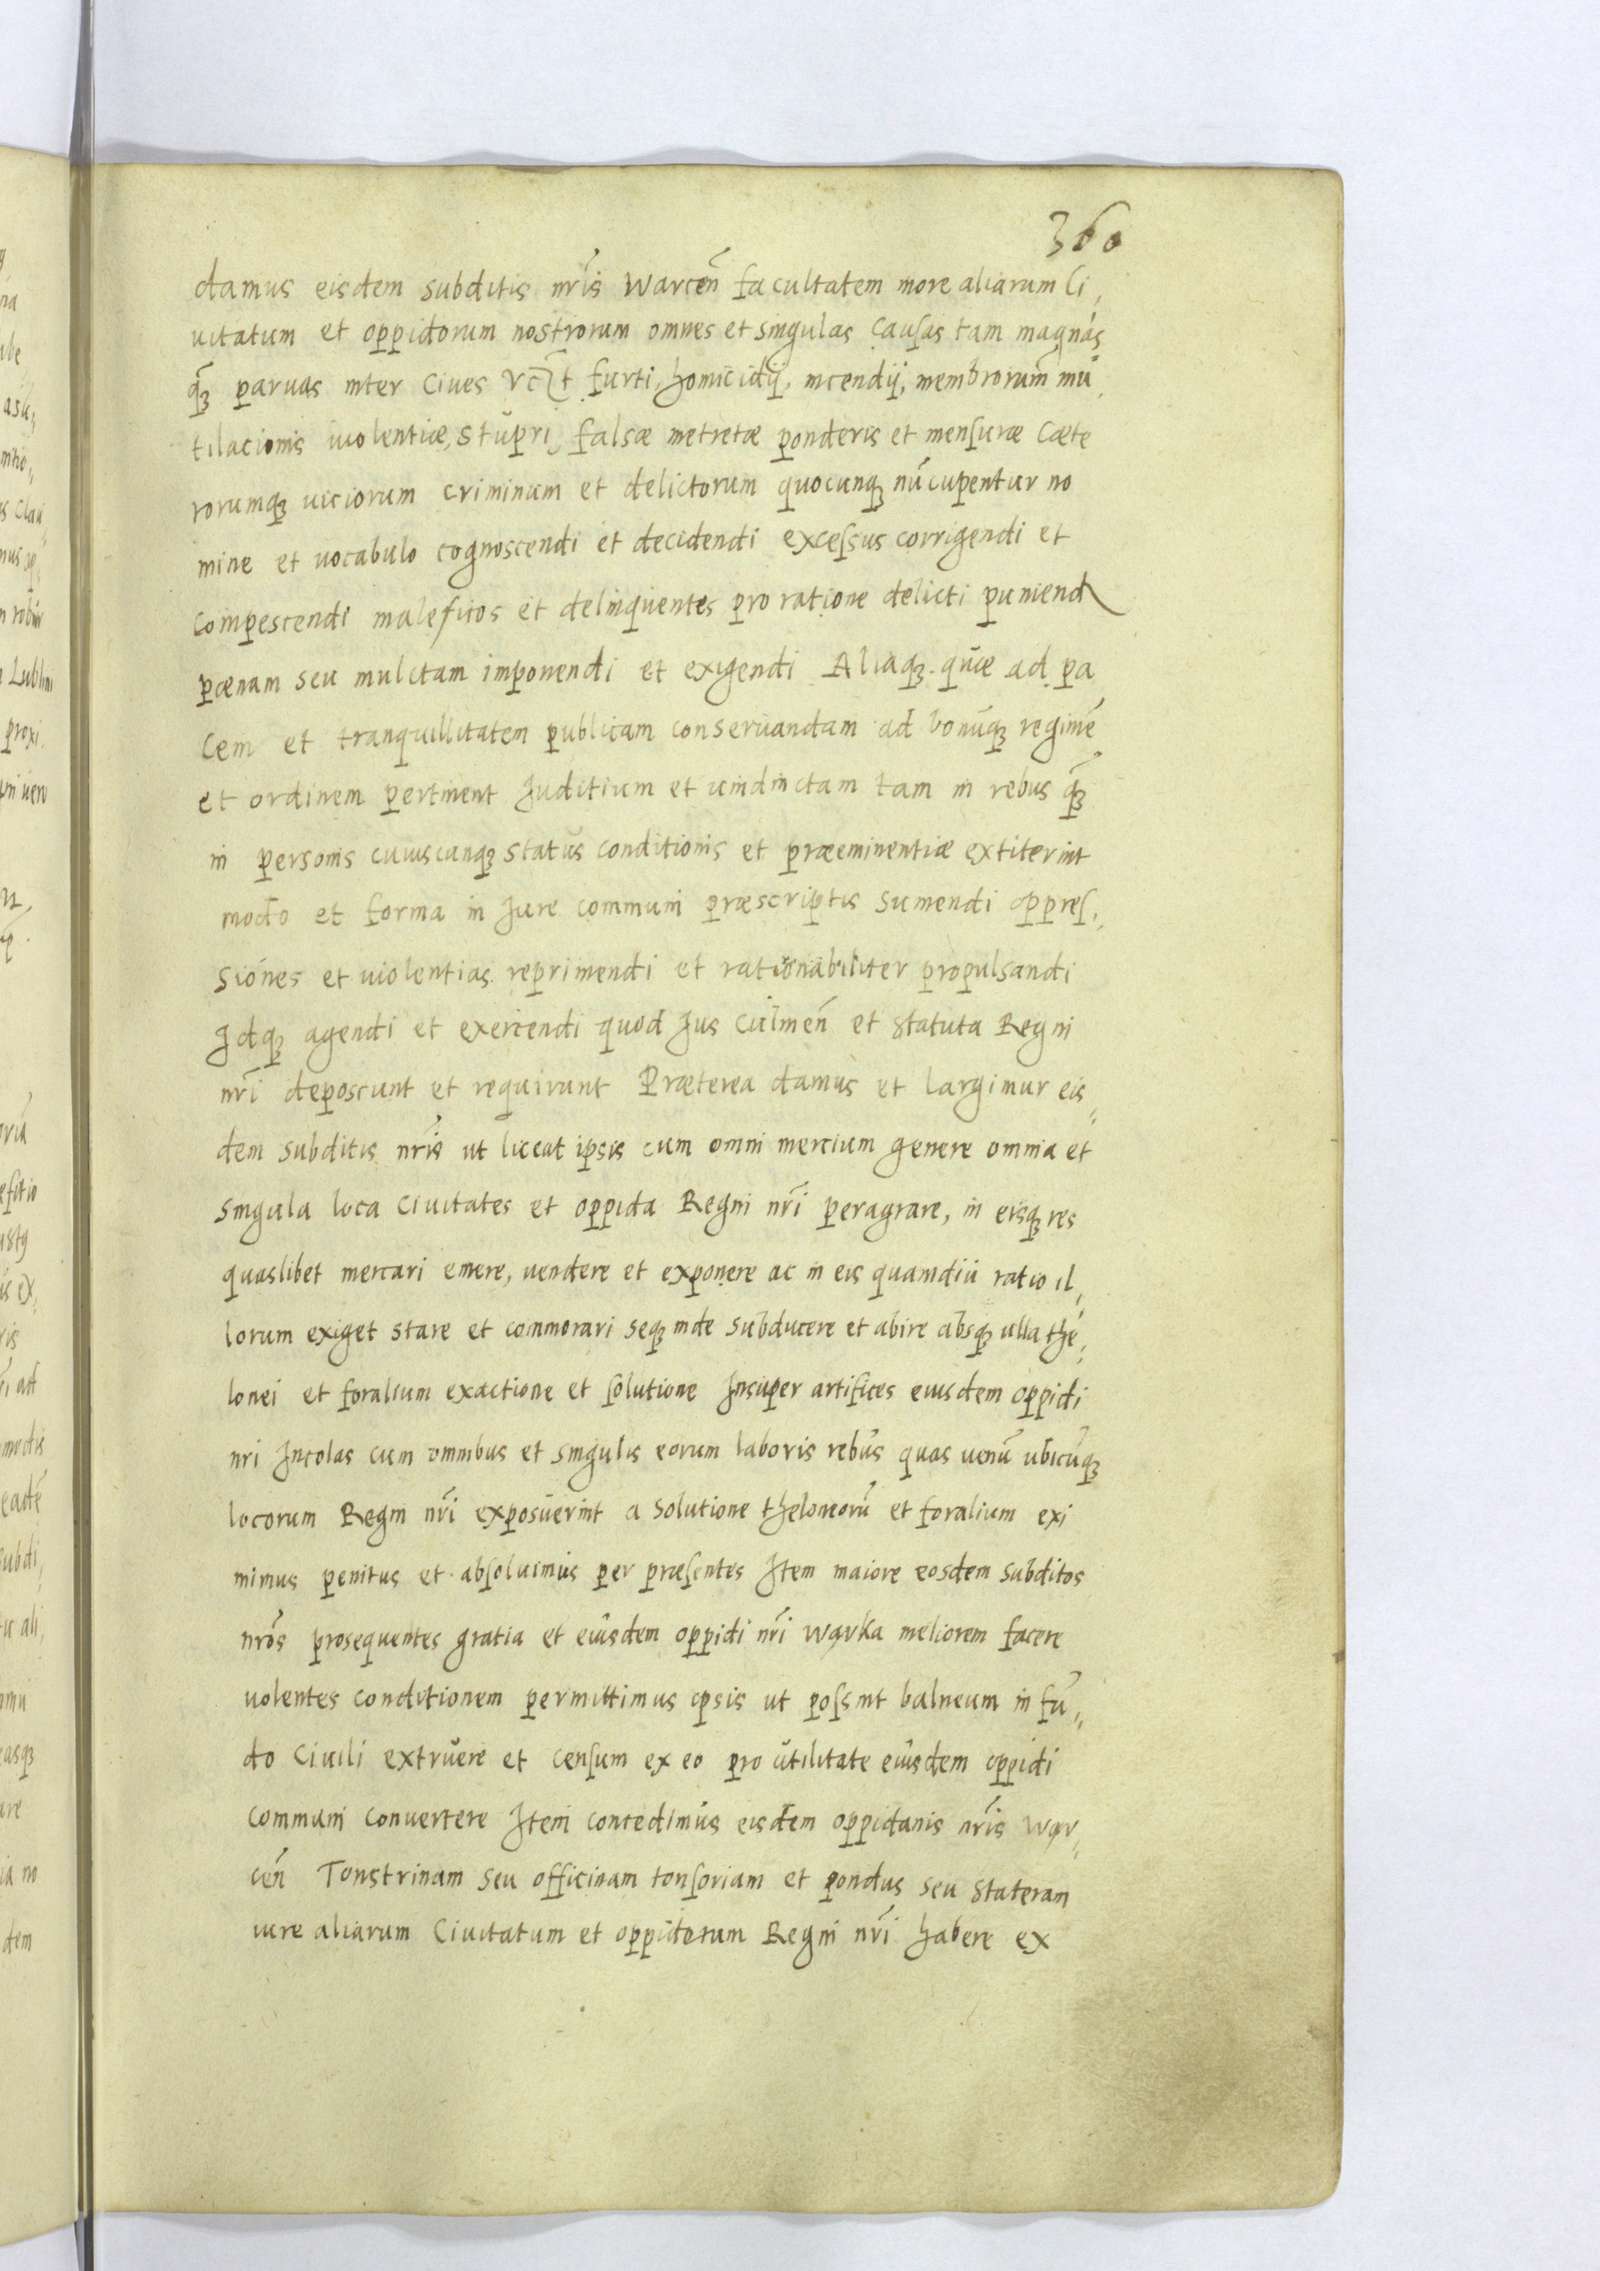 360
damus eisdem subditis nr̃is Warceñ facultatem more aliarum Ci,
uitatum et oppidorum nostrorum omnes et singulas causas tam magnas
q̃ʒ paruas inter Ciues furti, homicidij, incendij, membrorum mu,
tilacionis uiolentiæ, stupri, falsæ metretæ ponderis et mensuræ Cæte
rorumqʒ uiciorum criminum et delictorum quocunqʒ nũcupentur no
mine et uocabulo cognoscendi et decidendi excessus corrigendi et
compescendi maleficos et delinquentes pro ratione delicti puniend
pœnam seu mulctam imponendi et exigendi Aliaqʒ quæ ad pa
cem et tranquillitatem publicam conseruandam ad bonũqʒ regimẽ
et ordinem pertinent Juditium et uindinctam tam in rebus q̃ʒ
in personis cuiuscunqʒ status conditionis et præeminentiæ extiterint
modo et forma in Jure communi præscriptis sumendi oppres,
siones et uiolentias reprimendi et rationabiliter propulsandi
Jdqʒ agendi et exercendi quod Jus Culmeñ et statuta Regni
nr̃i deposcunt et requirunt Præterea damus et largimur eis,,
dem subditis nr̃is ut liceat ipsis cum omni mercium genere omnia et
singula loca Ciuitates et oppida Regni nr̃i peragrare, in eisqʒ res
quaslibet mercari emere, uendere et exponere ac in eis quamdiu ratio il,
lorum exiget stare et commorari seqʒ inde subducere et abire absqʒ ulla the,,
lonei et foralium exactione et solutione Insuper artifices eiusdem oppidi
nri Incolas cum omnibus et singulis eorum laboris rebus quas uenũ ubicũqʒ
locorum Regni nr̃i exposuerint a solutione theloneorũ et foralium exi
mimus penitus et absoluimus per præsentes Item maiore eosdem subditos
nr̃os prosequentes gratia et eiusdem oppidi nr̃i Warka meliorem facere
uolentes conditionem permittimus ipsis ut possint balneum in fũ,,
do Ciuili extruere et censum ex eo pro utilitate eiusdem oppidi
communi conuertere Item concedimus eisdem oppidanis nr̃is War,,
ceñ Tonstrinam seu officinam tonsoriam et pondus seu stateram
iure aliarum Ciuitatum et oppidorum Regni nr̃i habere ex